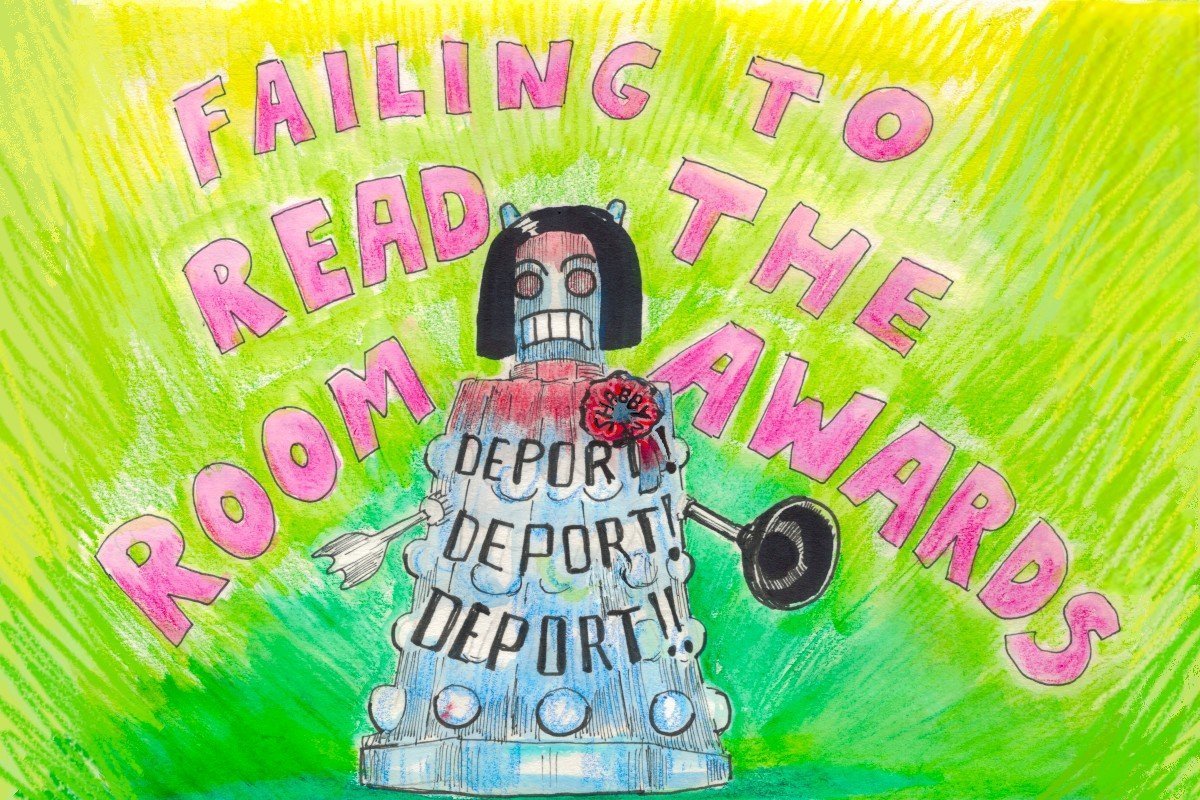 FAILING TO
READ THE
ROOM AWARDS
SHABBY
DEPORT!
DEPORT!
DEPORT!!